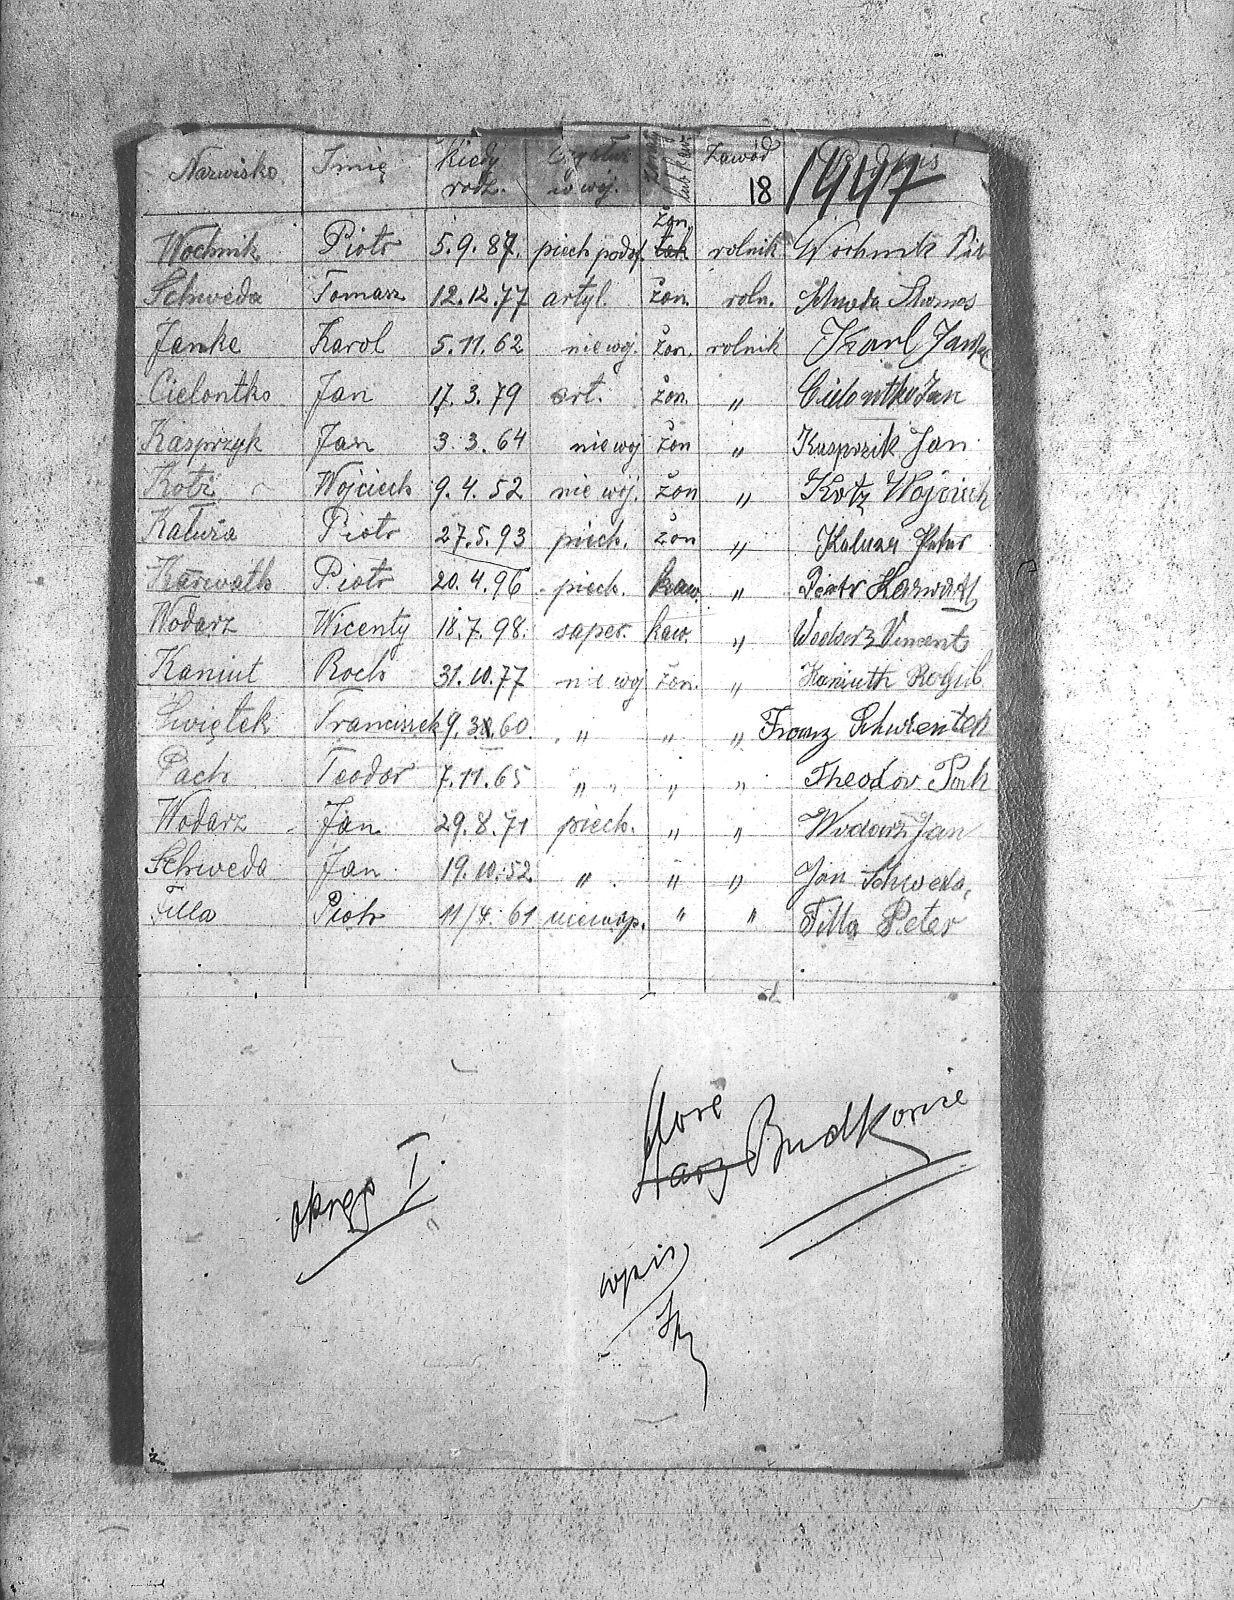 Nazwisko Imię Kiedy rodz. Czy służ. w woj. żonaty lub kaw. Zawód Podpis
18 1997
Wochnik Piotr 5.9.87. piech podof. żon. rolnik Wochnik
Schweda Tomasz 12.12.77 artyl. żon. roln. Schweda Thomas
Janke Karol 5.11.62 nie woj. żon. rolnik Karl Janke
Cielontko Jan 17.3.79 art. żon. " Cielontko Jan
Kasprzyk Jan 3.3.64 nie woj żon " Kasprzik Jan
Kotz Wojciech 9.4.52 nie woj. żon " Kotz Wojciech
Kałuża Piotr 27.5.93 piech. żon " Kaluza Peter
Karwath Piotr 20.4.96 piech. kaw. " Piotr Karwath
Wodarz Wicenty 18.7.98. saper. kaw. " Wodarz Vincent
Kaniut Roch 31.10.77 nie woj żon. " Kaniuth
Świętek Franciszek 9. 60. " " " Franz Schwientek
Pach Teodor 7.11.65 " " " " Theodor Pach
Wodarz Jan 29.8.71 piech. " " Wodarz Jan
Schweda Jan 19.10.52. " " " Jan Schweda
Filla Piotr 11/4 61 " " Filla Peter
Stare
Starz Budkowice
okręg I.
wpis